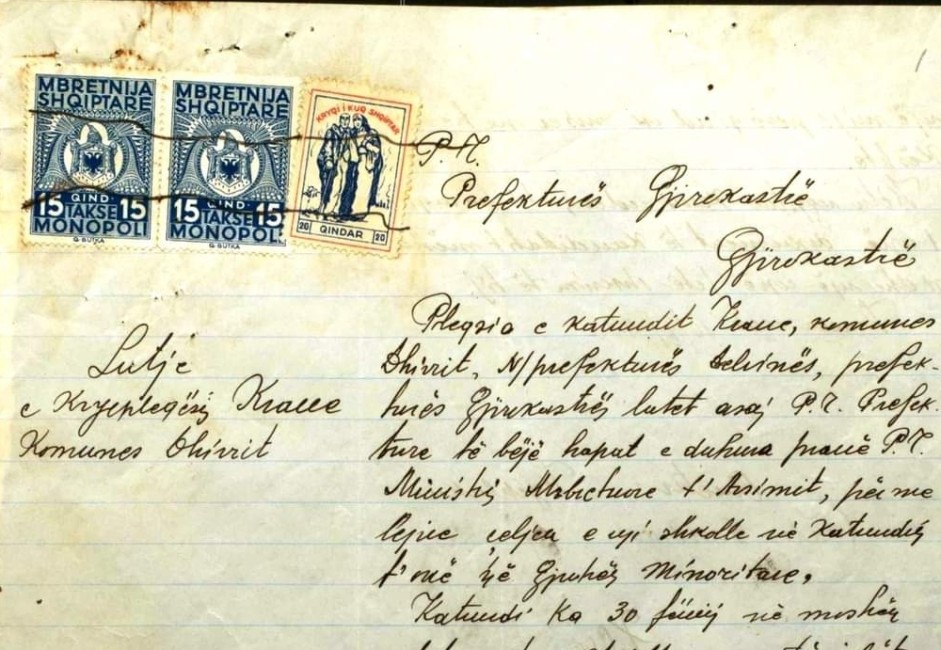 MBRETNIJA
SHQIPTARE
QIND
15 TAKSE 15
MONOPOLI
G. BUTKA
MBRETNIJA
SHQIPTARE
QIND
15 TAKSE 15
MONOPOLI
G. BUTKA
KRYQI I KUQ SHQIPTAR
20 QINDAR 20
P.T.
Prefekturës Gjirokastrë
Gjirokastrë
Lutje
e Kryeplegësij Krane
Komunes Dhivrit
Pleqsia e katundit Krane, komunes
Dhivrit, N/prefekturës Delvinës, prefek-
turës Gjirokastrës lutet asaj P.T. Prefek-
ture të bëjë hapat e duhura pranë P.T.
Ministris Mbretnore t'Arsimit, për me
lejue çeljen e nji shkolle në Katundin
t'onë në Gjuhën Minoritare.
Katundi ka 30 fëmij në moshën